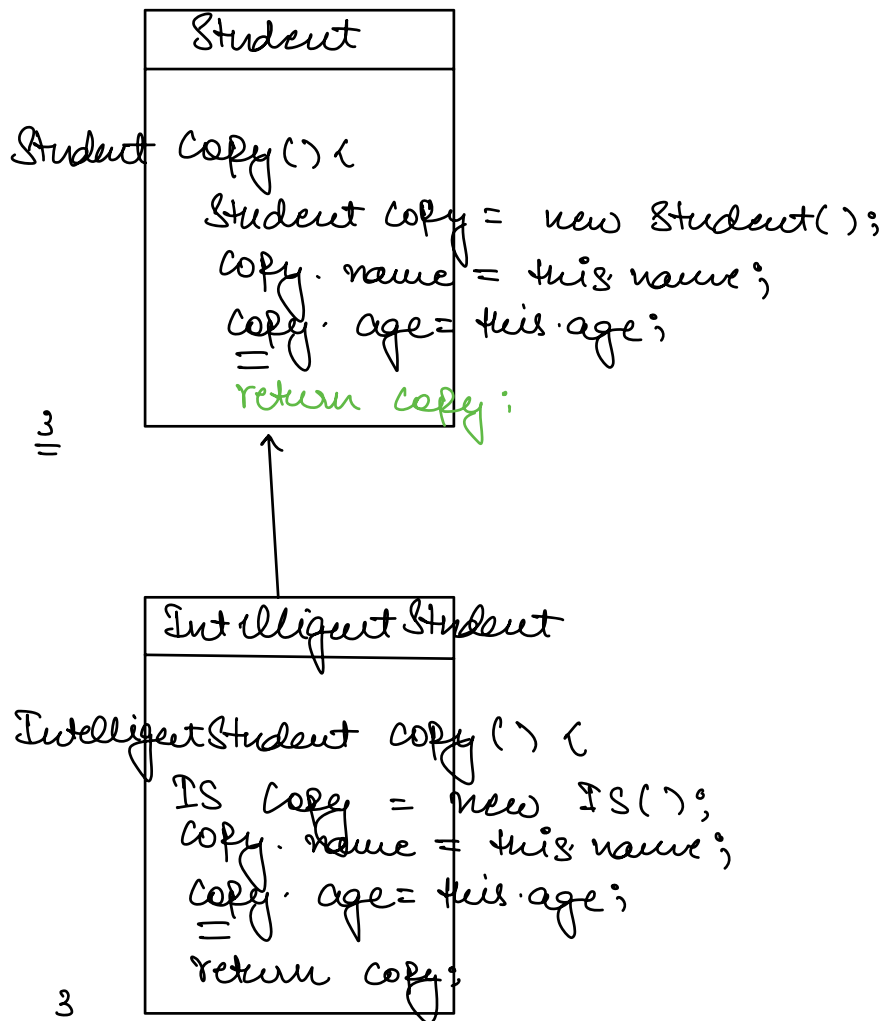 Student
Student copy() {
Student copy = new Student();
copy.name = this.name;
copy.age = this.age;
return copy;
}
IntelligentStudent
IntelligentStudent copy() {
IS copy = new IS();
copy.name = this.name;
copy.age = this.age;
return copy;
}